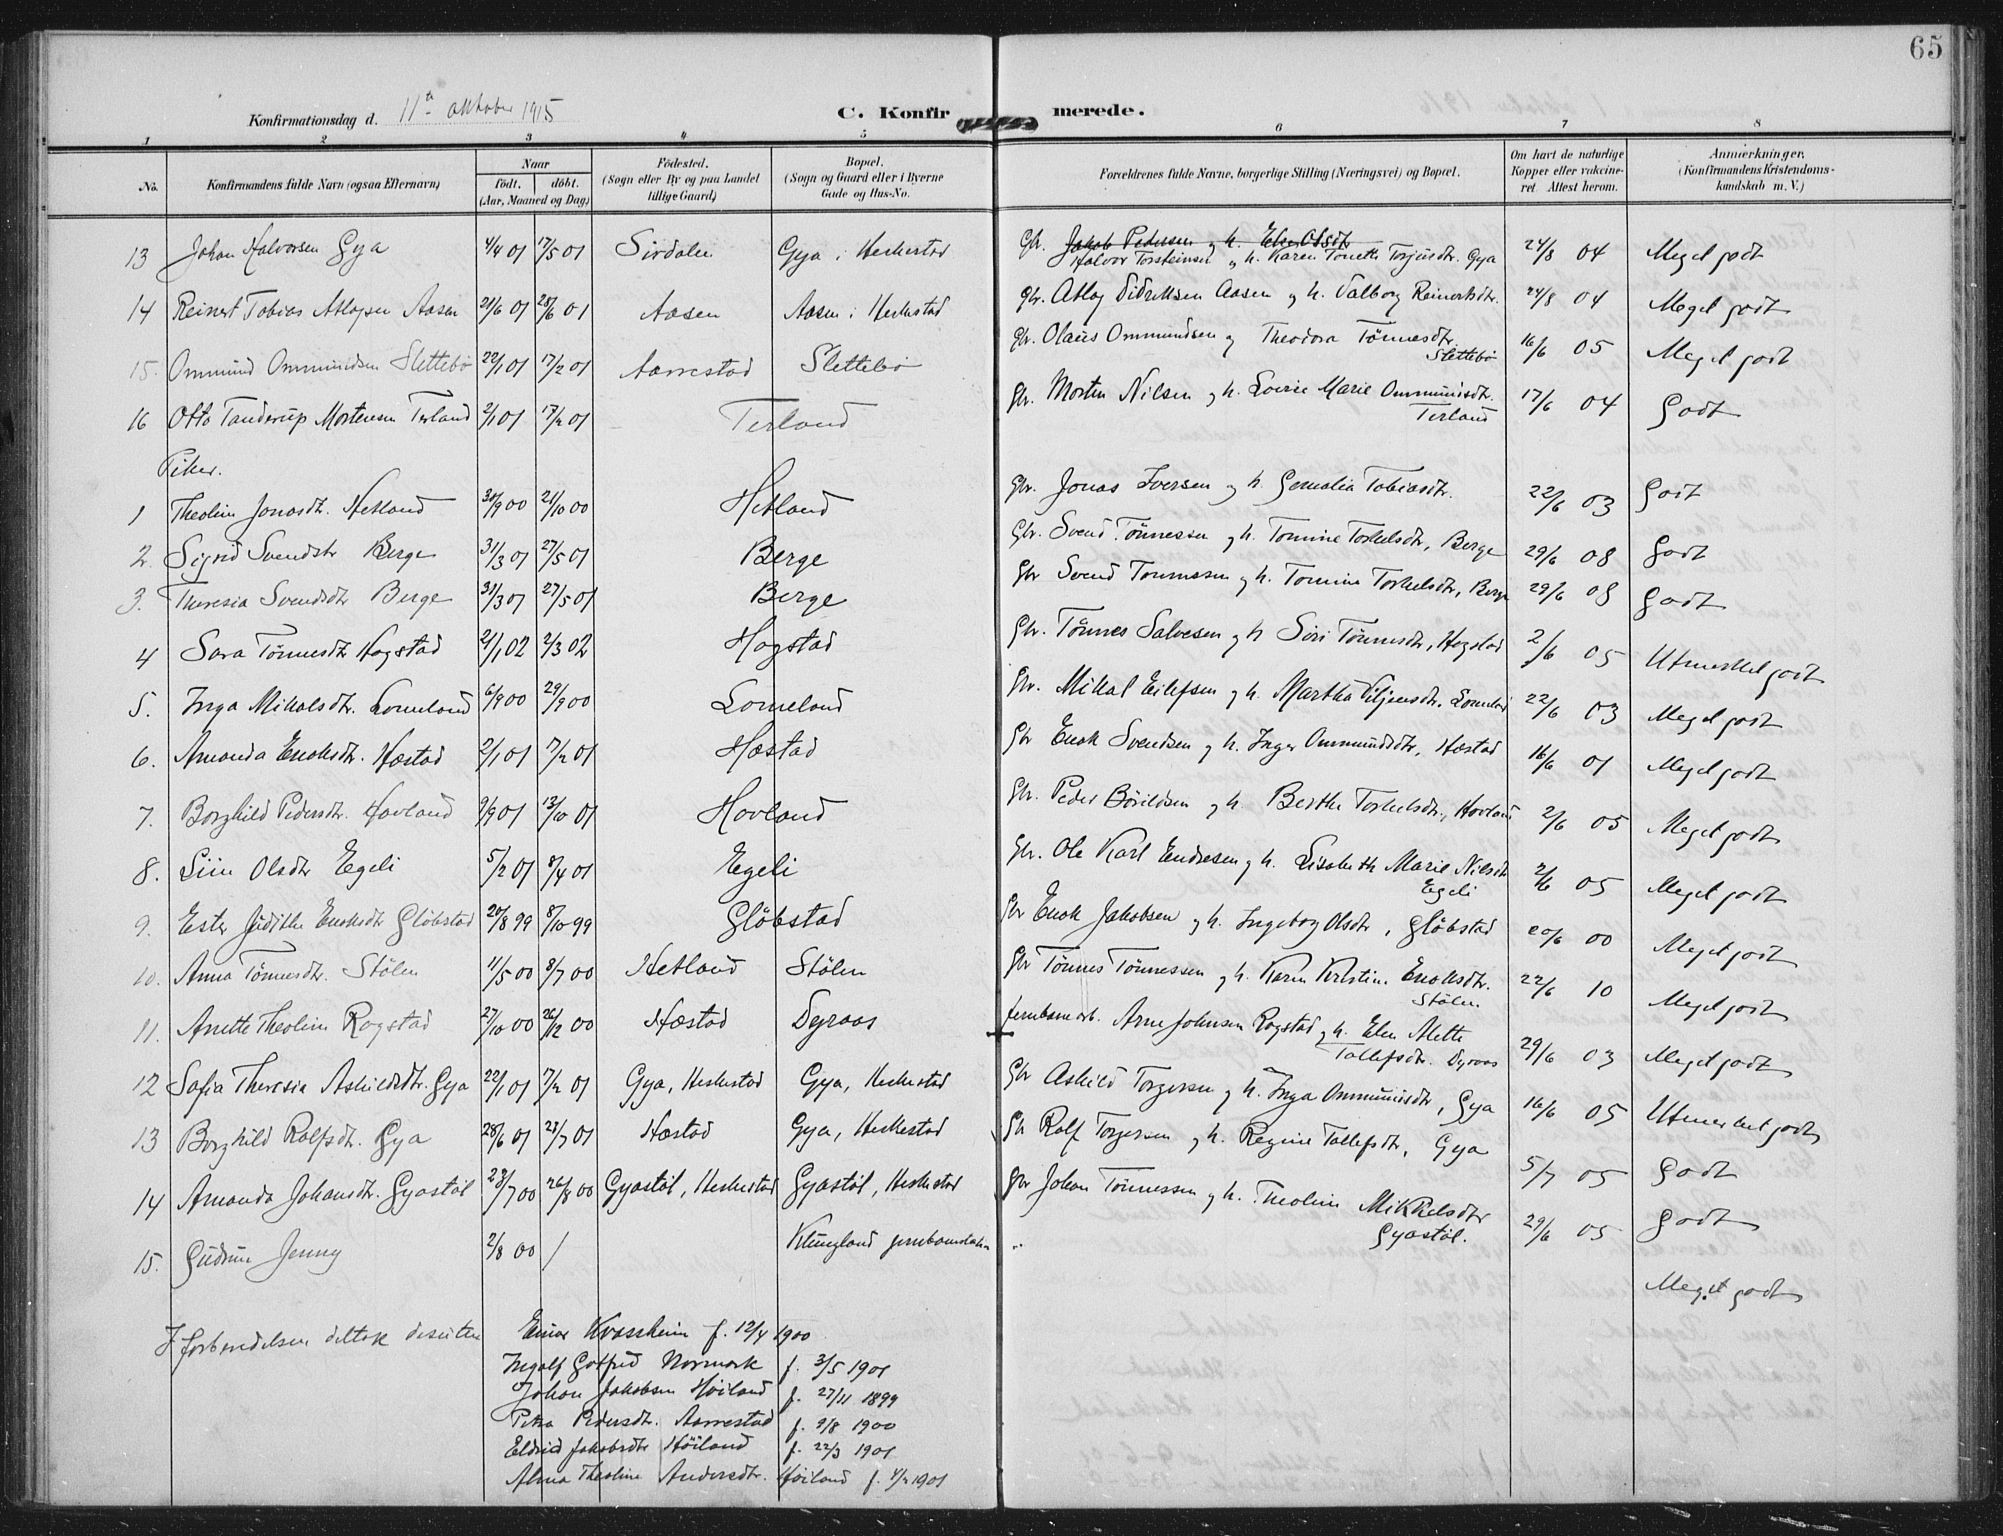 65
Konfirmationsdag d. 11te oktober 1915
C. Konfirmerede.
1 2 3 4 5 6 7 8
No. Konfirmandens fulde Navn (ogsaa Efternavn) Naar født, døbt. (Aar, Maaned og Dag) Fødested. (Sogn eller By og paa Landet tillige Gaard) Bopæl. (Sogn og Gaard eller i Byerne Gade og Hus-No. Forældrenes fulde Navne, borgerlige Stilling (Næringsvei) og Bopæl. Om havt de naturlige Kopper eller vaccineret. Attest herom. Anmærkninger. (Konfirmandens Kristendomskundskab m. V.)
13 Johan Halvorsen Gya 4/4 01 17/5 01 Sirdalen Gya i Heskestad Gbr. Jakob Pedersen og h. Halvor Torsteinsen og h. Karen Tonette Torjusdtr. Gya 24/8 04 Meget godt
14 Reinert Tobias Atlagsen Aasen 21/6 01 28/6 01 Aasen Aasen i Heskestad Gbr. Atlag Didriksen Aasen og h. Valborg Reinertsdtr. 24/8 04 Meget godt
15. Ommund Ommundsen Slettebø 22/1 01 17/2 01 Aarrestad Slettebø Gbr. Olaus Ommundsen og Theodora Tönnesdtr. Slettebö 16/6 05 Meget godt
16 Otto Tanderup Mortensen Terland 2/1 01 17/2 01 Terland Gbr. Morten Nilsen og h. Lovise Marie Ommundsdtr. Terland 17/6 04 Godt
Piker.
1 Theoline Jonasdtr. Hetland 30/9 00 21/10 00 Hetland Gbr. Jonas Iversen og h. Gemalia Tobiasdtr. 22/6 03 Godt
2. Sigrid Svendsdtr Berge 31/3 01 27/5 01 Berge Gbr. Svend Tönnessen og h. Tomine Torkelsdtr, Berge 29/6 08 Godt
3. Theresia Svendsdtr Berge 31/3 01 27/5 01 Berge Gbr Svend Tönnessen og h. Tomine Torkelsdtr, Berge 29/6 08 Godt
4 Sara Tönnesdtr Hogstad 21/1 02 2/3 02 Hogstad Gbr. Tönnes Salvesen og h Siri Tönnesdtr, Hogstad 2/6 05 Utmerket godt
5. Inga Mikalsdtr. Lomeland 6/9 00 29/9 00 Lomeland Gbr. Mikal Eilefsen og h. Martha Siljensdtr. Lomeland 22/6 03 Meget godt
6. Amanda Enoksdtr. Hæstad 2/1 01 17/2 01 Hæstad Gbr Enok Svendsen og h. Inger Ommundsdtr, Hæstad 16/6 01 Meget godt
7. Borghild Pedersdtr. Hovland 9/9 01 13/10 01 Hovland Gbr. Peder Börildsen og h. Berthe Torkelsdtr., Hovland 2/6 05 Meget godt
8. Siin Olsdtr Egeli 5/2 01 8/4 01 Egeli Gbr. Ole Karl Endresen og h. Lisabeth Marie Nilsdtr Egeli 2/6 05 Meget godt
9. Ester Judithe Enoksdtr Glöbstad 20/8 99 8/10 99 Glöbstad Gbr Enok Jakobsen og h. Ingeborg Olsdtr, Glöbstad 20/6 00 Meget godt
10. Anna Tönnesdtr. Stölen 11/5 00 8/7 00 Hetland Stölen Gbr Tönnes Tönnessen og h. Karen Kristine Enoksdtr. Stölen 22/6 10 Meget godt
11. Anette Theoline Rogstad 27/10 00 26/12 00 Hæstad Dyraas Jernbanearb. Arne Johnsen Rogstad og h. Elen Mette Tollefsdtr. Dyraas 29/6 03 Meget godt
12 Sofia Theresia Askildsdtr. Gya 22/1 01 7/2 01 Gya, Heskestad Gya, Heskestad Gbr Askild Torgersen og h. Inga Ommundsdtr, Gya 16/6 05 Utmerket godt
13 Borghild Rolfsdtr. Gya 28/6 01 28/7 01 Hæstad Gya, Heskestad Gbr Rolf Torgersen og h. Regine Tollefsdtr, Gya 5/7 05 Godt
14 Amanda Johansdtr. Gyastöl 23/7 00 26/8 00 Gyastöl, Heskestad Gyastöl, Heskestad Gbr Johan Tönnessen og h. Theoline Mikkelsdtr Gyastöl. 29/6 05 Godt
15. Gudrun Jenny 2/8 00 / Klungland jernbanestation " Meget godt
I forberedelsen deltok desuten Einar Kvassheim f. 12/4 1900
Ingolf Gotfred Normark f. 3/5 1901
Johan Jakobsen Höiland f. 27/11 1899
Petra Pedersdtr. Aarrestad f. 9/8 1900
Eldrid Jakobsdtr Höiland f. 22/3 1901
Alma Theoline Andersdtr. Höiland f. 4/2 1901